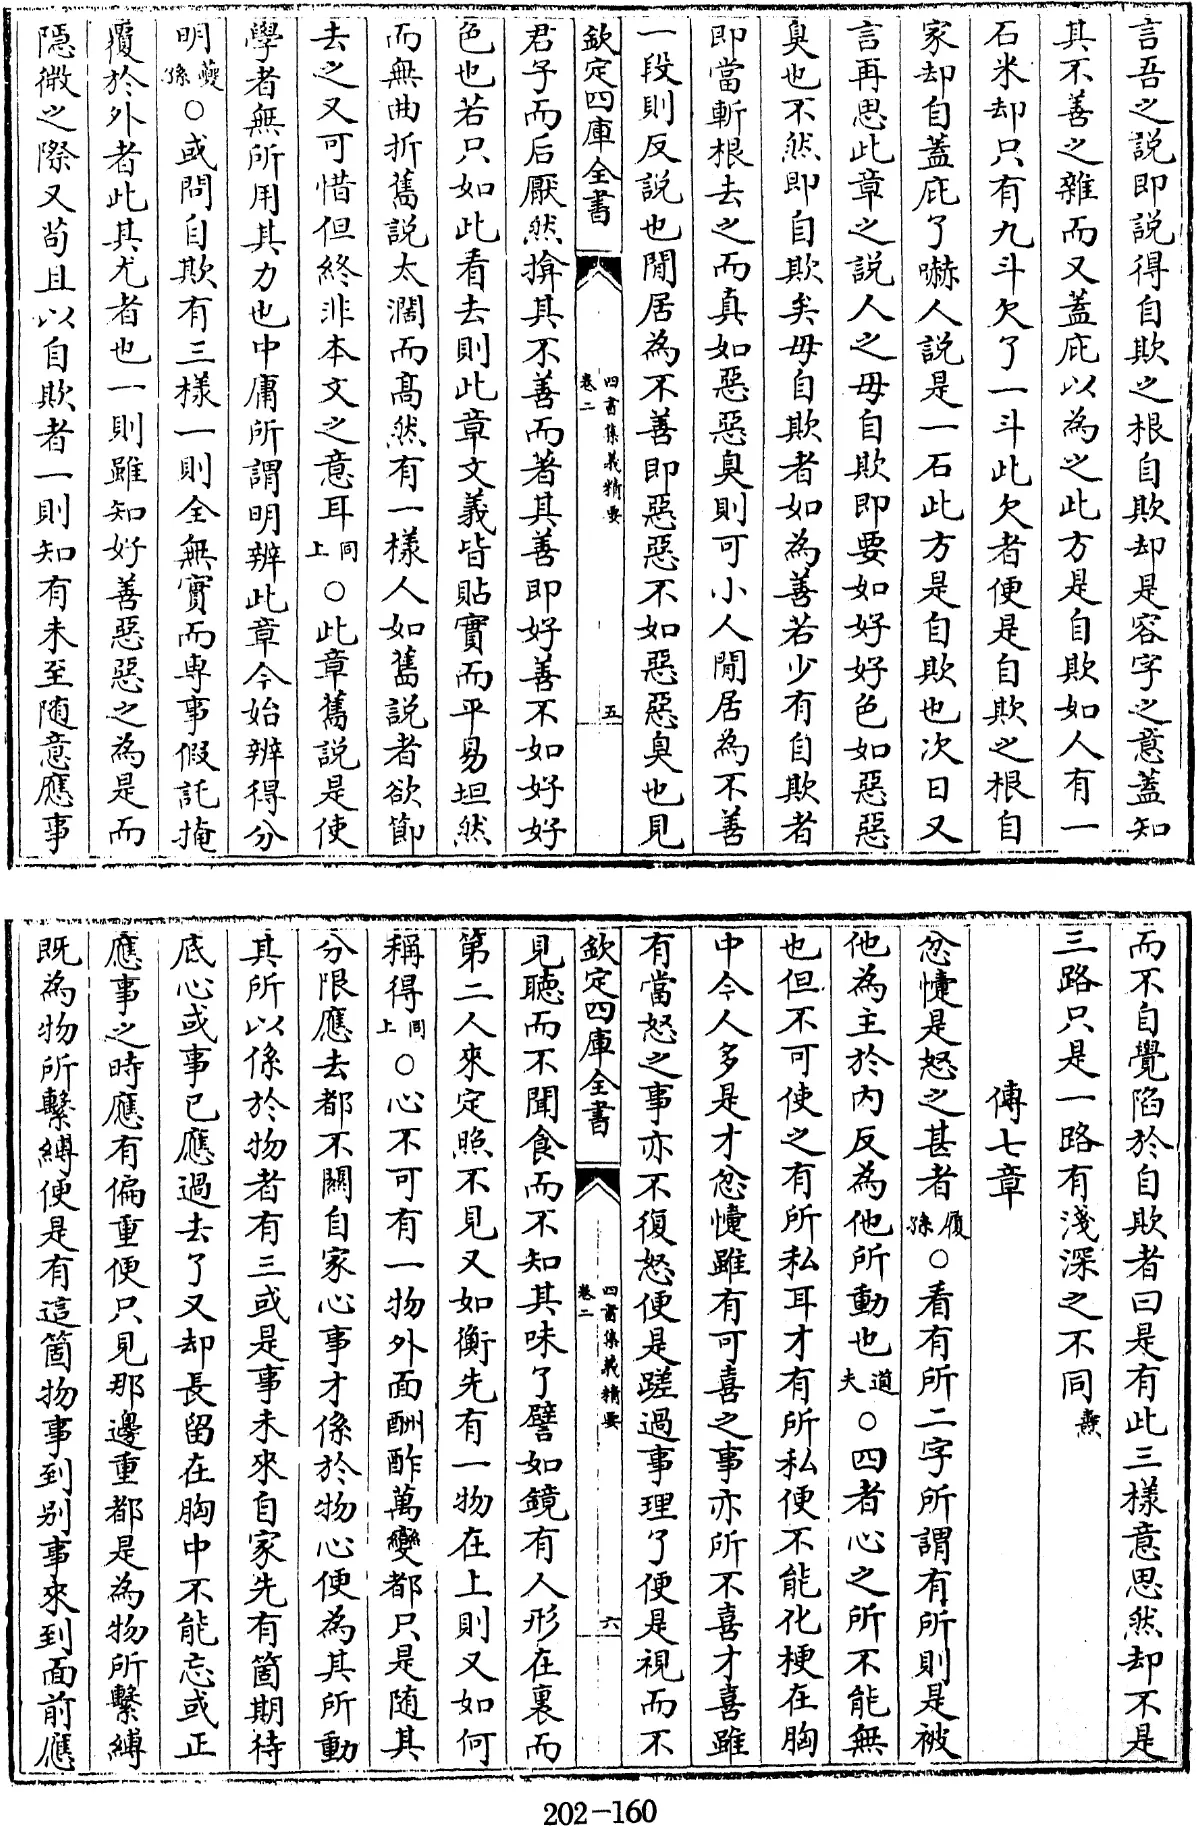 言吾之說即說得自欺之根自欺却是容字之意葢知
其不善之雜而又葢庇以為之此方是自欺如人有一
石米却只有九斗欠了一斗此欠者便是自欺之根自
家却自葢庇了嚇人說是一石此方是自欺也次日又
言再思此章之說人之毋自欺即要如好好色如惡惡
臭也不然即自欺矣毋自欺者如為善若少有自欺者
即當斬根去之而真如惡惡臭則可小人閒居為不善
一段則反說也閒居為不善即惡惡不如惡惡臭也見
欽定四庫全書
四書集義精要
卷二
五
君子而后厭然揜其不善而著其善即好善不如好好
色也若只如此看去則此章文義皆貼實而平易坦然
而無曲折舊說太濶而髙然有一様人如舊說者欲節
去之又可惜但終非本文之意耳同上○此章舊說是使
學者無所用其力也中庸所謂明辨此章今始辨得分
明夔孫○或問自欺有三様一則全無實而専事假託掩
覆於外者此其尤者也一則雖知好善惡惡之為是而
隠微之際又苟且以自欺者一則知有未至随意應事
而不自覺陷於自欺者曰是有此三様意思然却不是
三路只是一路有淺深之不同燾
傳七章
忿懥是怒之甚者履孫○看有所二字所謂有所則是被
他為主於内反為他所動也道夫○四者心之所不能無
也但不可使之有所私耳才有所私便不能化梗在胸
中今人多是才忿懥雖有可喜之事亦所不喜才喜雖
有當怒之事亦不復怒便是蹉過事理了便是視而不
欽定四庫全書
四書集義精要
卷二
六
見聽而不聞食而不知其味了譬如鏡有人形在裏而
第二人來定照不見又如衡先有一物在上則又如何
稱得同上○心不可有一物外面酬酢萬變都只是随其
分限應去都不闗自家心事才係於物心便為其所動
其所以係於物者有三或是事未來自家先有箇期待
底心或事已應過去了又却長留在胸中不能忘或正
應事之時應有偏重便只見那邊重都是為物所繫縛
既為物所繫縛便是有這箇物事到别事來到面前應
202-160